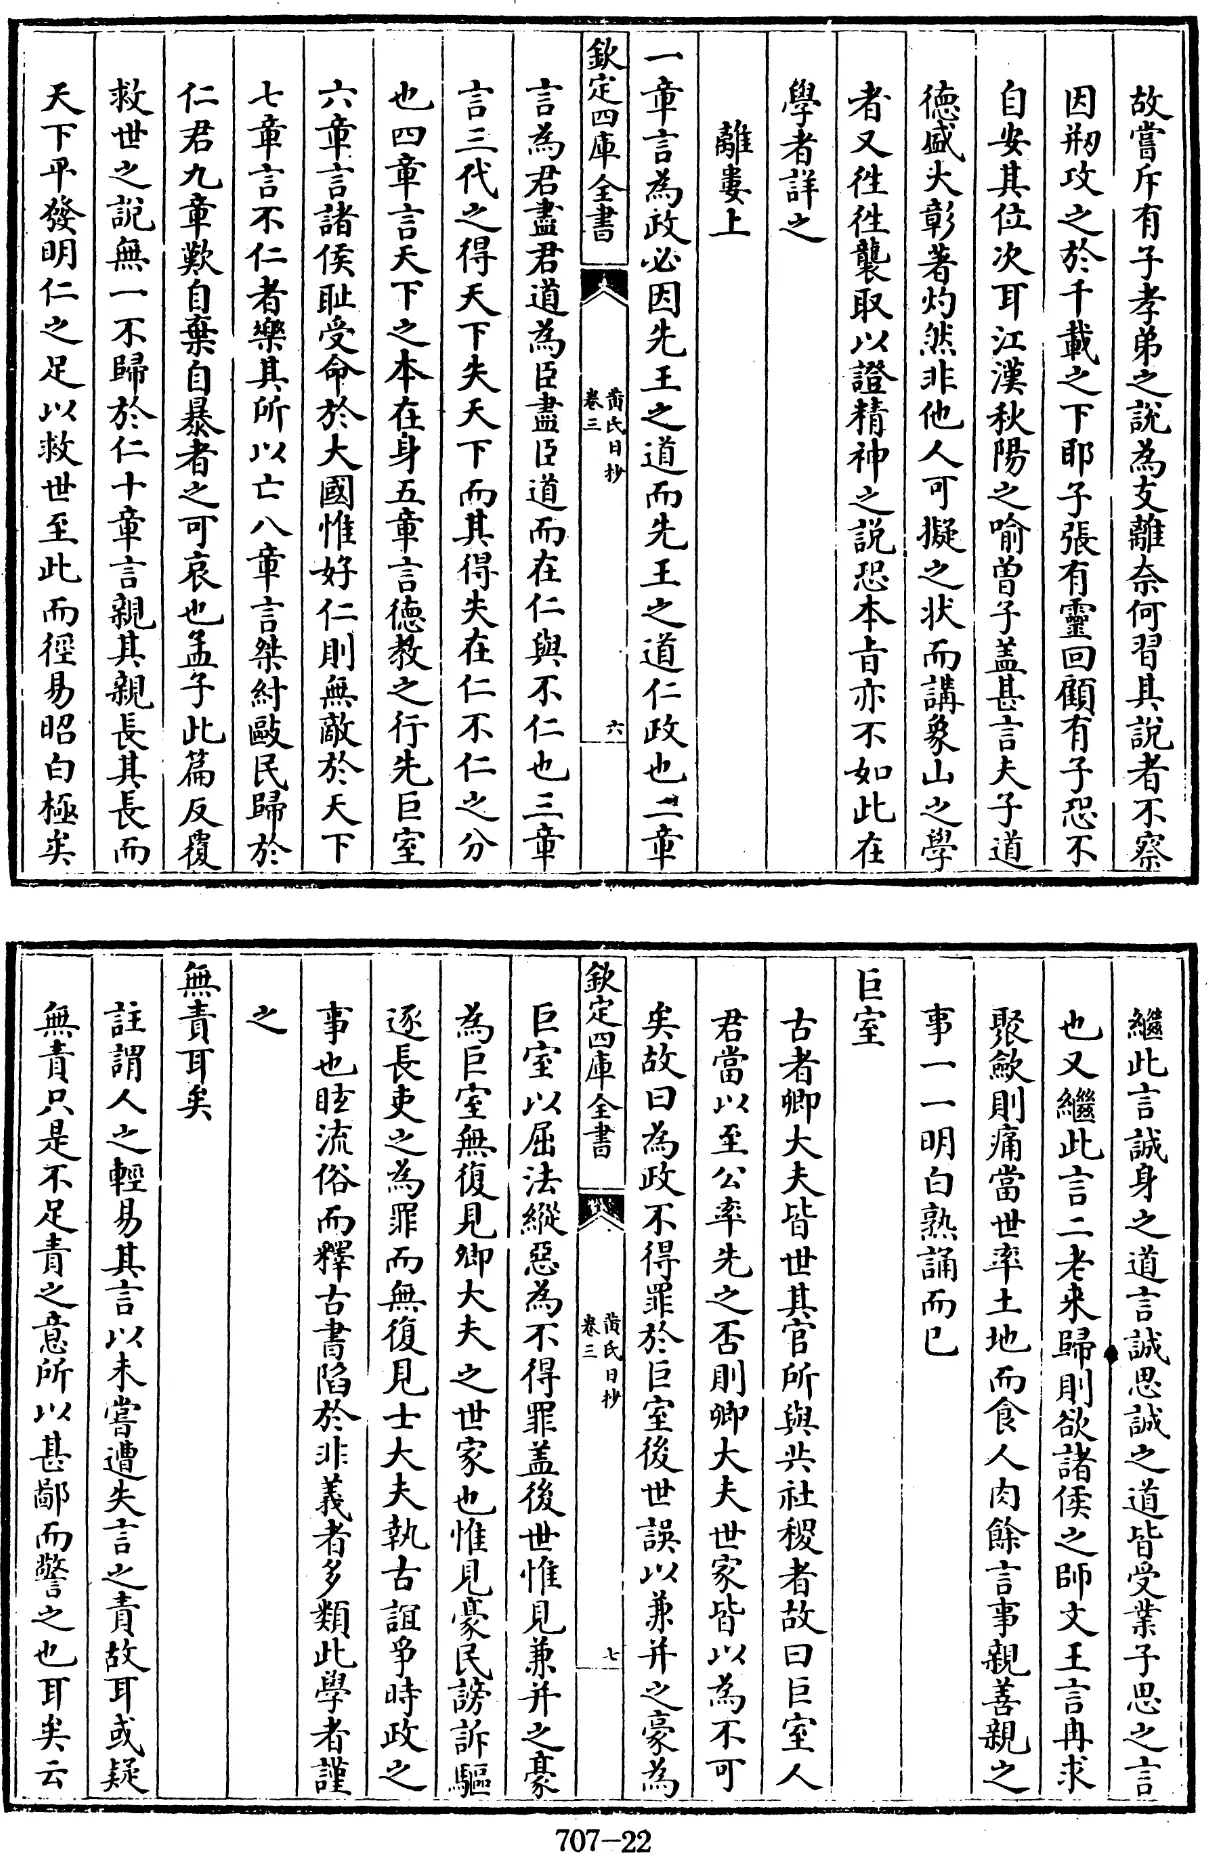 故嘗斥有子孝弟之説為支離奈何習其説者不察
因剏攻之於千載之下耶子張有靈回顧有子恐不
自安其位次耳江漢秋陽之喻曽子盖甚言夫子道
德盛大彰著灼然非他人可擬之状而講象山之學
者又徃徃襲取以證精神之説恐本㫖亦不如此在
學者詳之
離婁上
一章言為政必因先王之道而先王之道仁政也二章
欽定四庫全書
黄氏日抄
卷三
六
言為君盡君道為臣盡臣道而在仁與不仁也三章
言三代之得天下失天下而其得失在仁不仁之分
也四章言天下之本在身五章言德教之行先巨室
六章言諸侯耻受命於大國惟好仁則無敵於天下
七章言不仁者樂其所以亡八章言桀紂敺民歸於
仁君九章歎自棄自暴者之可哀也孟子此篇反覆
救世之說無一不歸於仁十章言親其親長其長而
天下平發明仁之足以救世至此而徑易昭白極矣
繼此言誠身之道言誠思誠之道皆受業子思之言
也又繼此言二老来歸則欲諸侯之師文王言冉求
聚歛則痛當世率土地而食人肉餘言事親善親之
事一一明白熟誦而已
巨室
古者卿大夫皆世其官所與共社稷者故曰巨室人
君當以至公率先之否則卿大夫世家皆以為不可
矣故曰為政不得罪於巨室後世誤以兼并之豪為
欽定四庫全書
黄氏日抄
卷三
七
巨室以屈法縱惡為不得罪盖後世惟見兼并之豪
為巨室無復見卿大夫之世家也惟見豪民謗訴驅
逐長吏之為罪而無復見士大夫執古誼爭時政之
事也眩流俗而釋古書陷於非義者多類此學者謹
之
無責耳矣
註謂人之輕易其言以未嘗遭失言之責故耳或疑
無責只是不足責之意所以甚鄙而警之也耳矣云
707-22